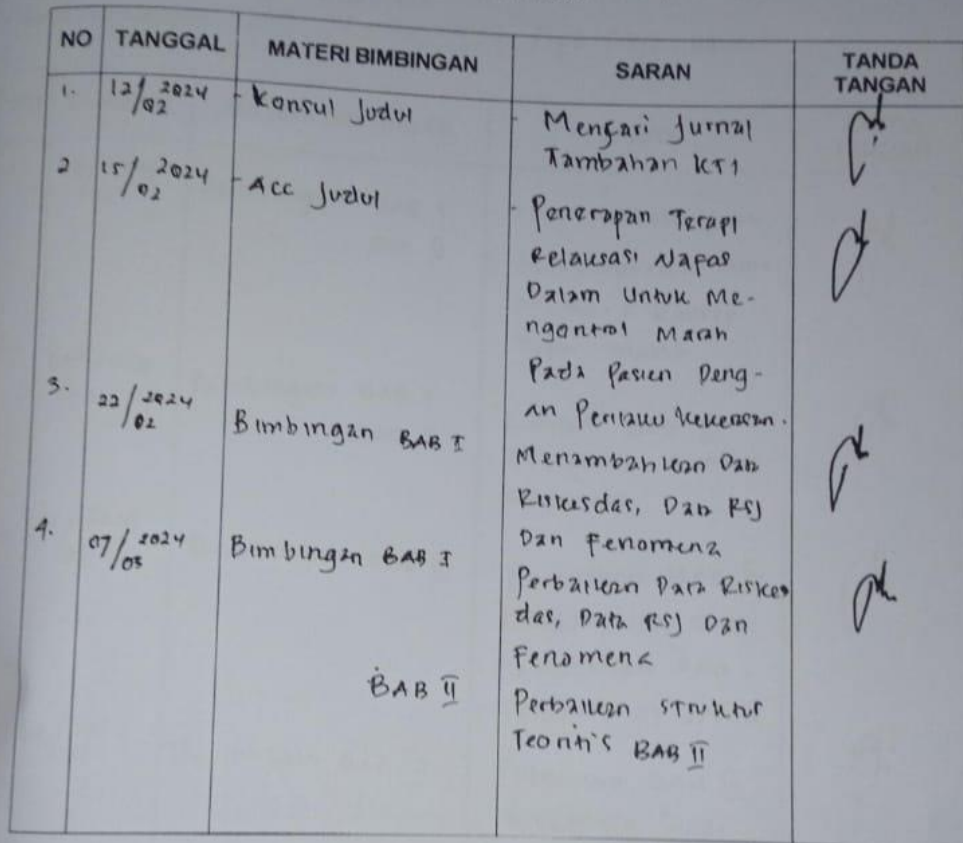 NO TANGGAL MATERI BIMBINGAN SARAN TANDA TANGAN
1. 12/02 2024 - Konsul Judul - Mencari Jurnal
Tambahan KTI
2 15/02 2024 - Acc Judul - Penerapan Terapi
Relaksasi Napas
Dalam Untuk Me-
ngontrol Marah
Pada Pasien Deng-
an Perilaku Kekerasan.
3. 22/02 2024 Bimbingan BAB I Menambahkan Data
Riskesdas, Data RSJ
Dan Fenomena
4. 07/03 2024 Bimbingan BAB I Perbaikan Data Riskes
das, Data RSJ Dan
Fenomena
BAB II Perbaikan Struktur
Teoritis BAB II